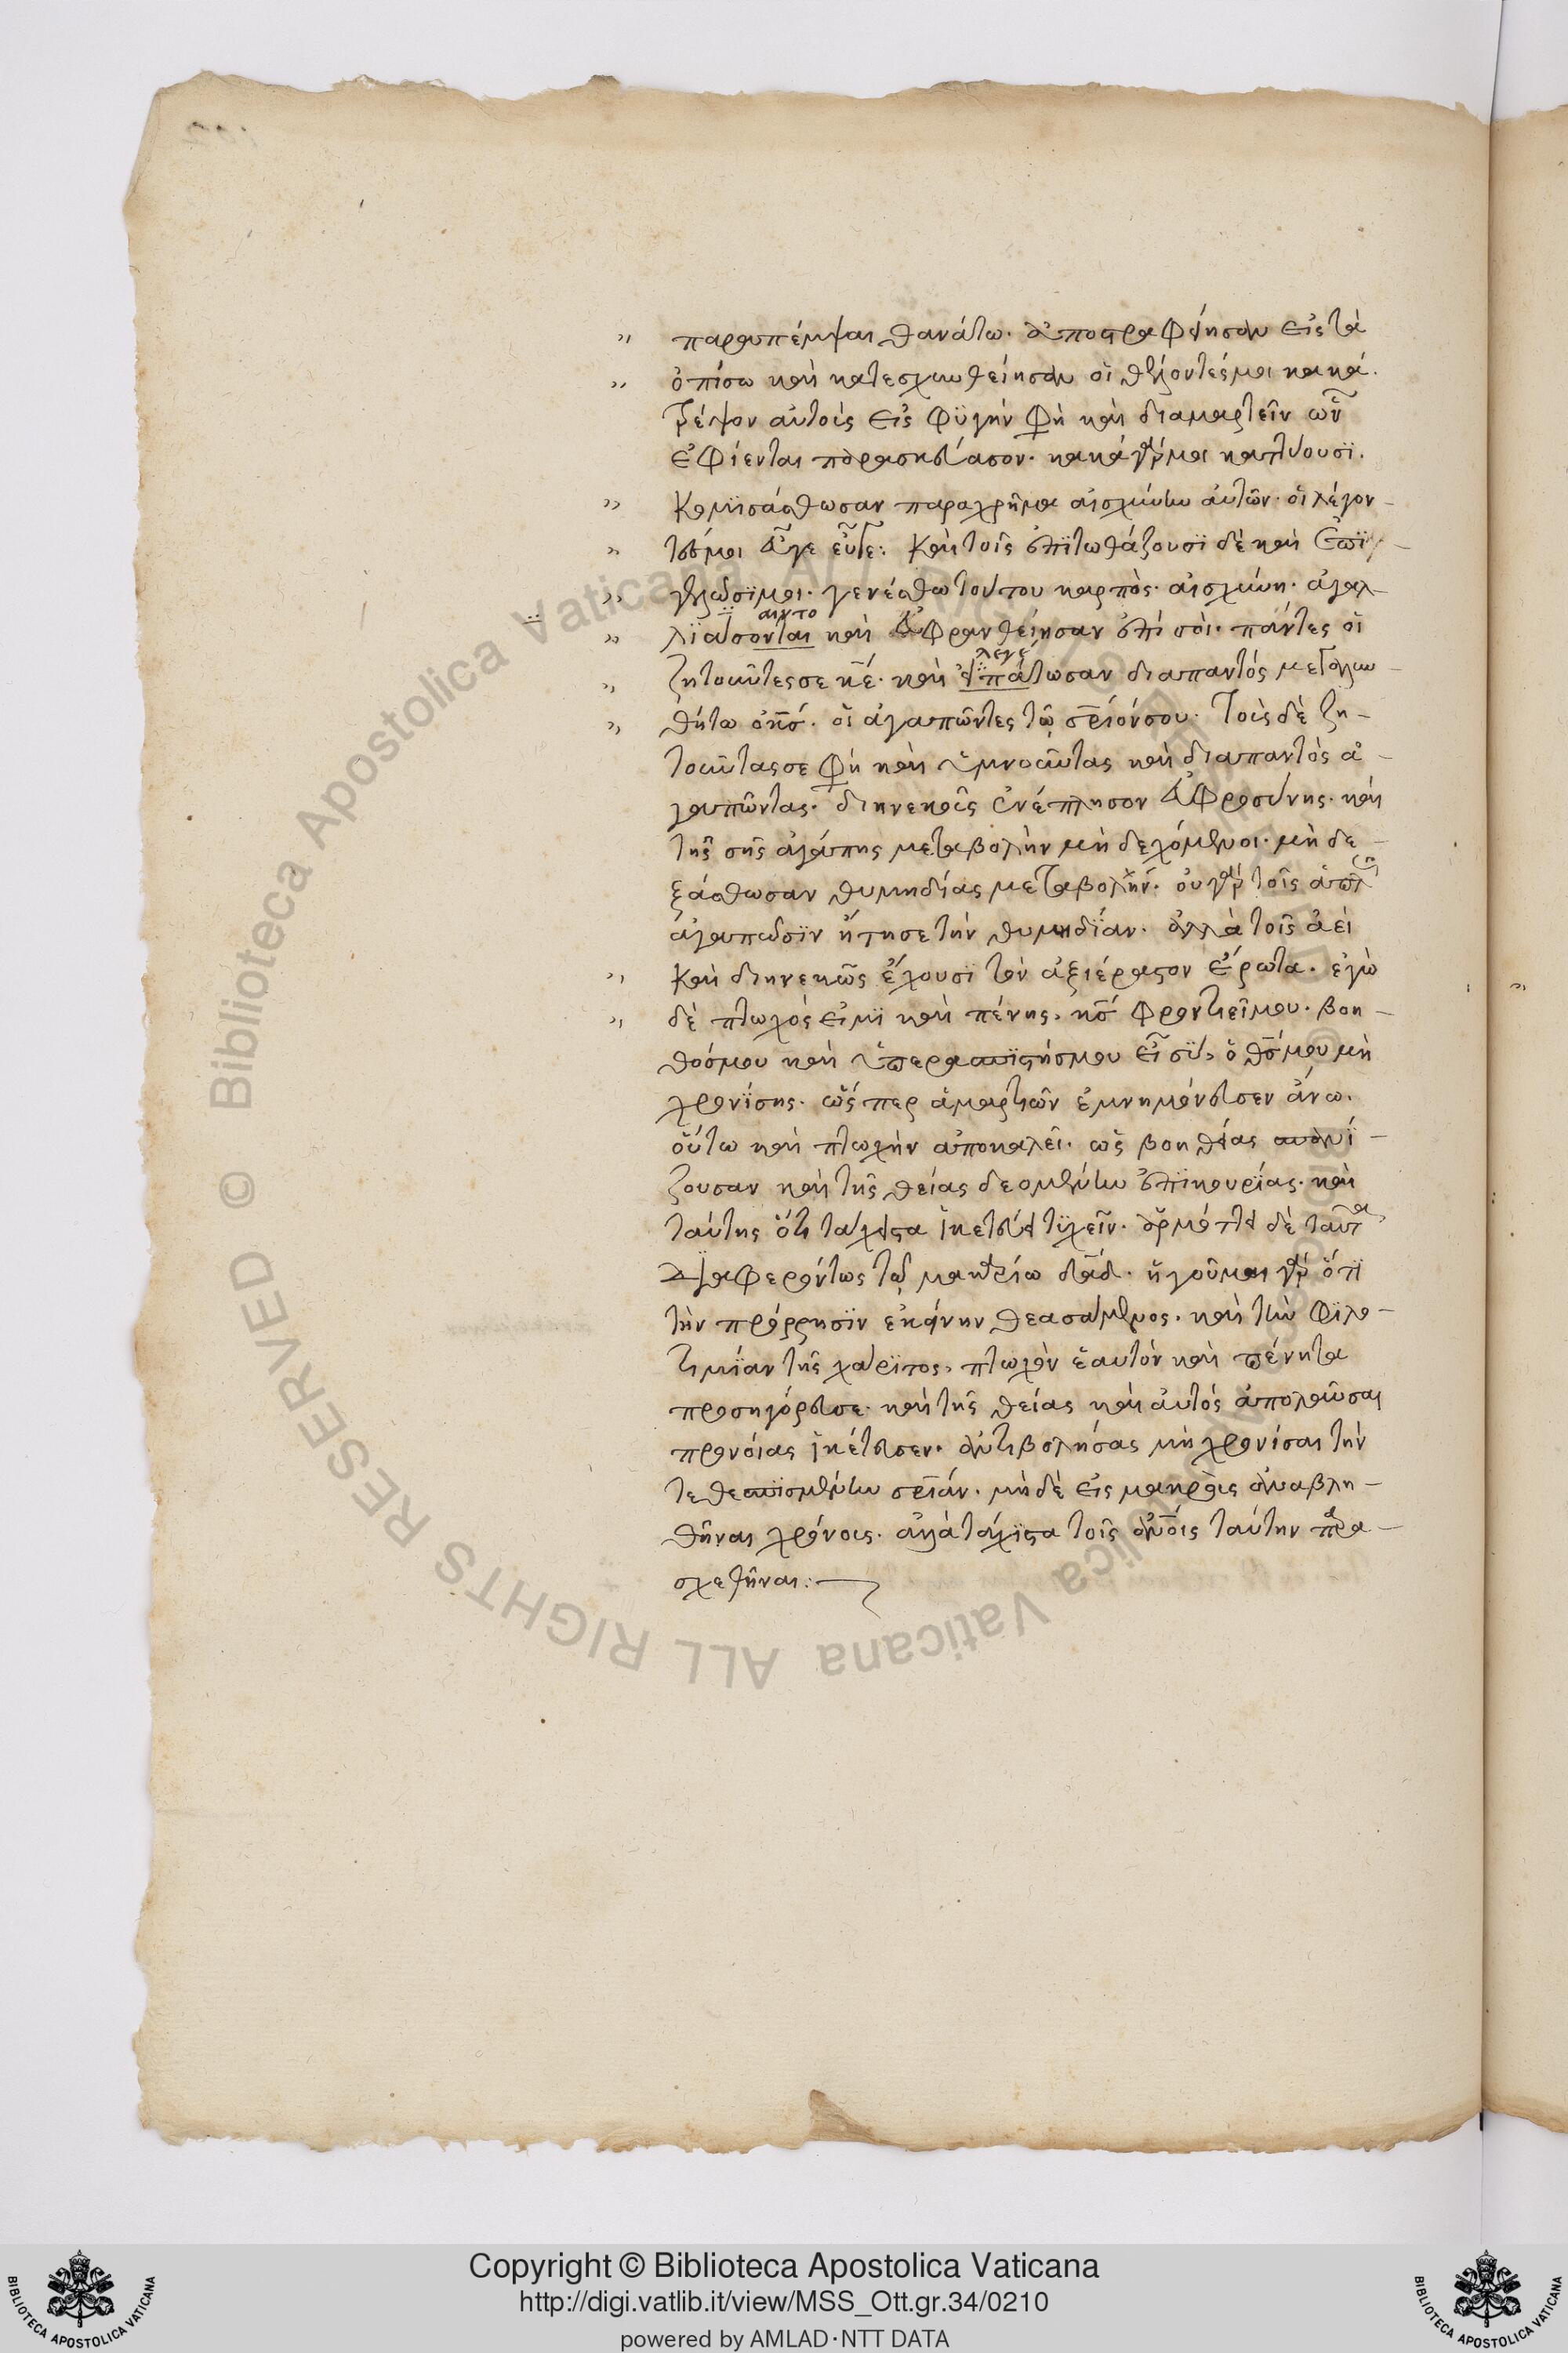 παραπέμψαι θανάτω. ἀποστραφείησαν εἰς τὰ
ὀπίσω καὶ κατεσχυνθείησαν οἱ θέλοντές μοι κακά.
τρέψον αὐτοὺς εἰς φυγήν φη καὶ διαμαρτεῖν ὧν
ἐφίενται παρασκεύασον. κακὰ γάρ μοι
Κομισάσθωσαν παραχρῆμα αἰσχύνην αὐτῶν. οἱ λέγον-
τές μοι εὖγε εὖγε: Καὶ τοῖς ἐπιτωθάζουσι δὲ καὶ ἐπι
γελῶσί μοι. γενέσθω τούτου καρπὸς αἰσχύνη. ἀγαλ-
αιντο
λιάσονται καὶ εὐφρανθείησαν ἐπί σοὶ. πάντες οἱ
λεγέ
ζητοῦντες σε κε. καὶ εἰπάτωσαν διαπαντός μεγαλυν-
θήτω ὁ κς. οἱ ἀγαπῶντες τὸ σριόν σου. Τοὺς δὲ ζη-
τοῦντας σε φη καὶ ὑμνοῦντας καὶ διαπαντὸς ἀ-
γαπῶντας. διηνεκοῦς ἐνέπλησον εὐφροσύνης. καὶ
τῆς σῆς ἀγάπης μεταβολὴν μὴ δεχόμενοι. μὴ δε-
ξάσθωσαν θυμηδίας μεταβολήν. οὐ γάρ τοῖς ἁπλῶς
ἀγαπῶσιν ἤτησε τὴν θυμηδίαν. ἀλλὰ τοῖς ἀεὶ
Καὶ διηνεκῶς ἔχουσι τὸν ἀξιέραστον ἔρωτα. ἐγὼ
δὲ πτωχός εἰμι καὶ πένης, κς φροντιεῖ μου. βοη-
θός μου καὶ ὑπερασπιστής μου εἶ σύ, ὁ θς μου μὴ
χρονίσης. ὥς περ ἁμαρτιῶν ἐμνημόνευσεν ἄνω.
οὕτω καὶ πτωχὴν ἀποκαλεῖ. ὡς βοηθείας
ζουσαν καὶ τῆς θείας δεομένην ἐπικουρίας. καὶ
ταύτης ὅτι τάχιστα ἱκετεύει τυχεῖν. ἁρμόττει δὲ ταῦτα
διαφερόντως τῶ μακαρίω δαδ. ἡγοῦμαι γάρ ὅτι
τὴν πρόρρησιν ἐκείνην θεασάμενος. καὶ τὴν φιλο-
τιμίαν τῆς χάριτος, πτωχὸν ἑαυτὸν καὶ πένητα
προσηγόρευσε. καὶ τῆς θείας καὶ αὐτός ἀπολαῦσαι
προνοίας ἱκέτευσεν. ἀντιβολήσας μὴ χρονίσαι τὴν
τεθεσπισμένην σριάν. μὴ δὲ εἰς μακροὺς ἀναβλη-
θῆναι χρόνους. ἀλλὰ τάχιστα τοῖς ἀνοις ταύτην παρα-
σχεθῆναι:
Copyright © Biblioteca Apostolica Vaticana
http://digi.vatlib.it/view/MSS_Ott.gr.34/0210
powered by AMLAD·NTT DATA